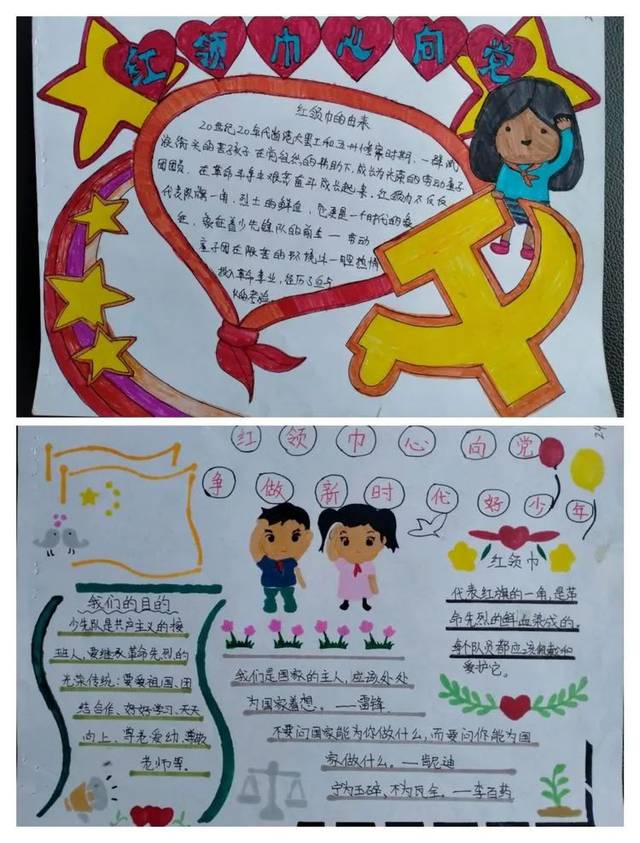 红领巾心向党
红领巾的由来
20世纪20年代
时期,一群
孩子 在党组织的帮助下,成长为光荣的劳动童子
团团员,在革命斗争中艰苦奋斗成长起来。红领巾不仅仅
代表队旗一角,烈士的鲜血,它更是一个时代的
征,象征着少先锋队的前生——劳动
童子团在艰苦的环境、以一腔热情
投入革命事业,经历了血与
火的考验。
红领巾心向党
24
争做新时代好少年
我们的目的
少先队是共产主义的接
班人,要继承革命先烈的
光荣传统:要爱祖国、团
结合作、好好学习、天天
向上、尊老爱幼、尊敬
老师等。
我们是国家的主人,应该处处
为国家着想。——雷锋
不要问国家能为你做什么,而要问你能为国
家做什么。——肯尼迪
宁为玉碎,不为瓦全。——李百药
红领巾
代表红旗的一角,是革
命先烈的鲜血染成的。
每个队员都应该佩戴和
爱护它。